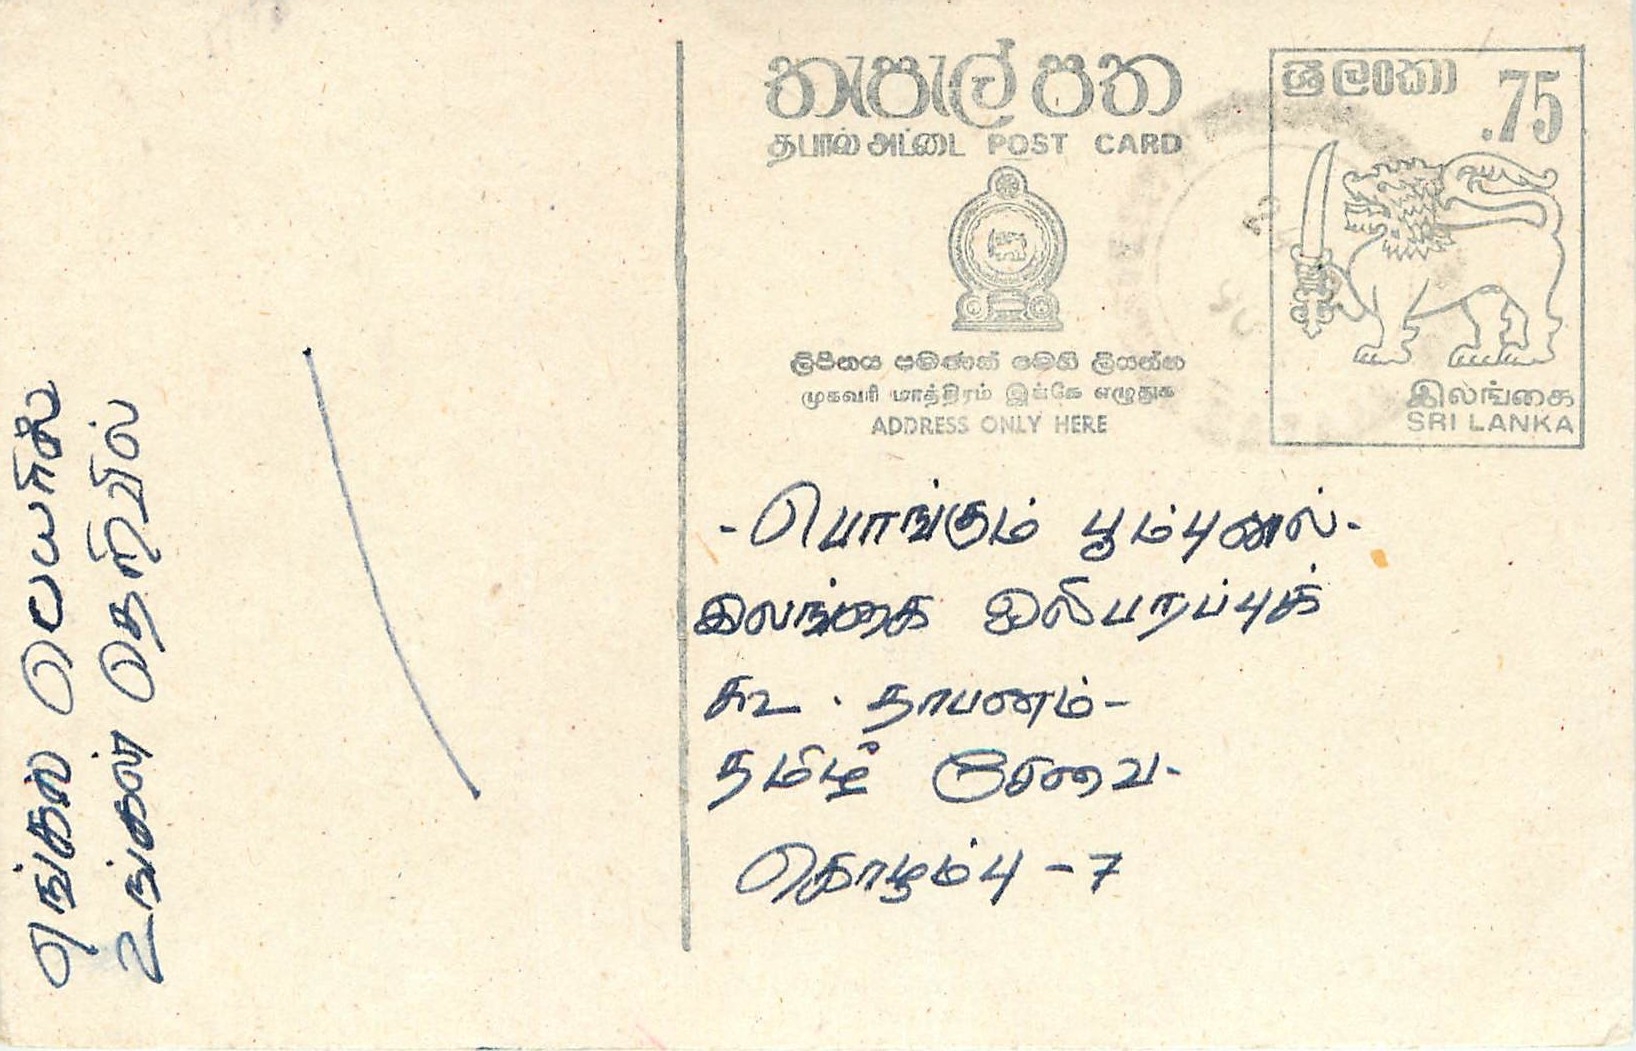 எங்கள் பெயரில்
உங்கள் தெரிவில்
තැපැල් පත
தபால் அட்டை POST CARD
ශ්‍රී ලංකා .75
ලිපිනය පමණක් මෙහි ලියන්න
முகவரி மாத்திரம் இங்கே எழுதுக
ADDRESS ONLY HERE
இலங்கை
SRI LANKA
-பொங்கும் பூம்புனல்-
இலங்கை ஒலிபரப்புக்
கூ. தாபனம்-
தமிழ் சேவை-
கொழும்பு - 7